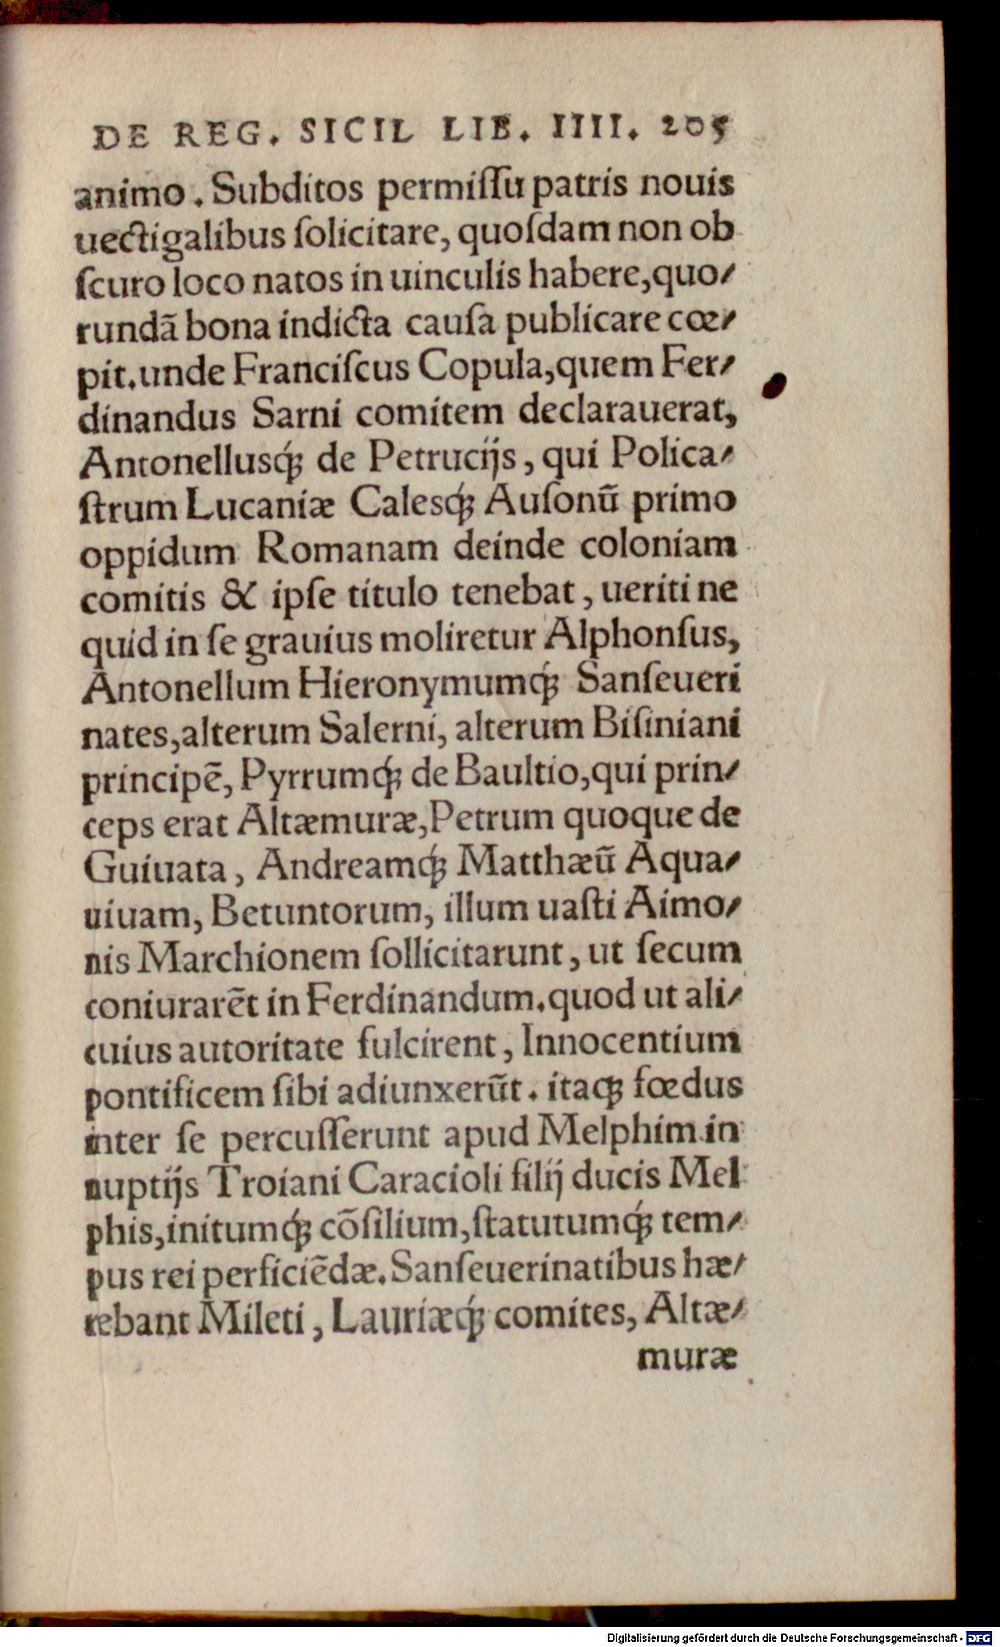 DE REG. SICIL LIB. IIII. 205
animo. Subditos permiſſu patris nouis
uectigalibus ſolicitare, quoſdam non ob
ſcuro loco natos in uinculis habere, quo/
rundã bona indicta cauſa publicare cœ/
pit. unde Franciſcus Copula, quem Fer/
dinandus Sarni comitem declarauerat,
Antonelluſq́ꝫ de Petrucijs, qui Polica/
ſtrum Lucaniæ Caleſq́ꝫ Auſonũ primo
oppidum Romanam deinde coloniam
comitis & ipſe titulo tenebat, ueriti ne
quid in ſe grauius moliretur Alphonſus,
Antonellum Hieronymumq́ꝫ Sanſeueri
nates, alterum Salerni, alterum Biſiniani
principẽ, Pyrrumq́ꝫ de Baultio, qui prin/
ceps erat Altæmuræ, Petrum quoque de
Guiuata, Andreamq́ꝫ Matthæũ Aqua/
uiuam, Betuntorum, illum uaſti Aimo/
nis Marchionem ſollicitarunt, ut ſecum
coniurarẽt in Ferdinandum. quod ut ali/
cuius autoritate fulcirent, Innocentium
pontificem ſibi adiunxerũt. itaqꝫ fœdus
inter ſe percuſſerunt apud Melphim in
nuptijs Troiani Caracioli filij ducis Mel
phis, initumq́ꝫ cõſilium, ſtatutumq́ꝫ tem/
pus rei perficiẽdæ. Sanſeuerinatibus hæ/
rebant Mileti, Lauriæq́ꝫ comites, Altæ/
muræ
Digitalisierung gefördert durch die Deutsche Forschungsgemeinschaft - DFG